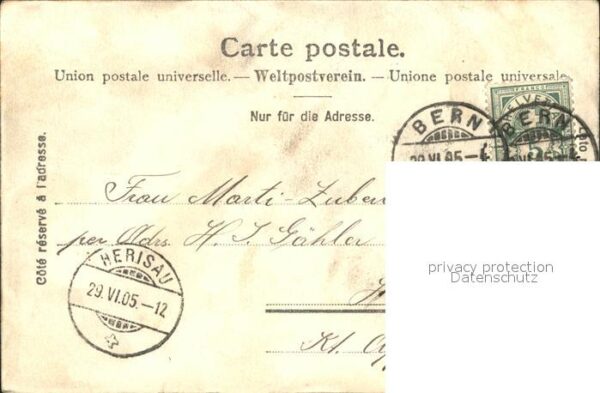 Carte postale.
Union postale universelle. — Weltpostverein. — Unione postale universale
Nur für die Adresse.
Côté réservé à l'adresse.
BERN
29.VI.05.-4
BERN
HELVETIA
FRANCO
5
Frau Marti-Zuber
per Adrs. H. J. Gähler
HERISAU
29.VI.05.-12
Kt. Ap
privacy protection
Datenschutz